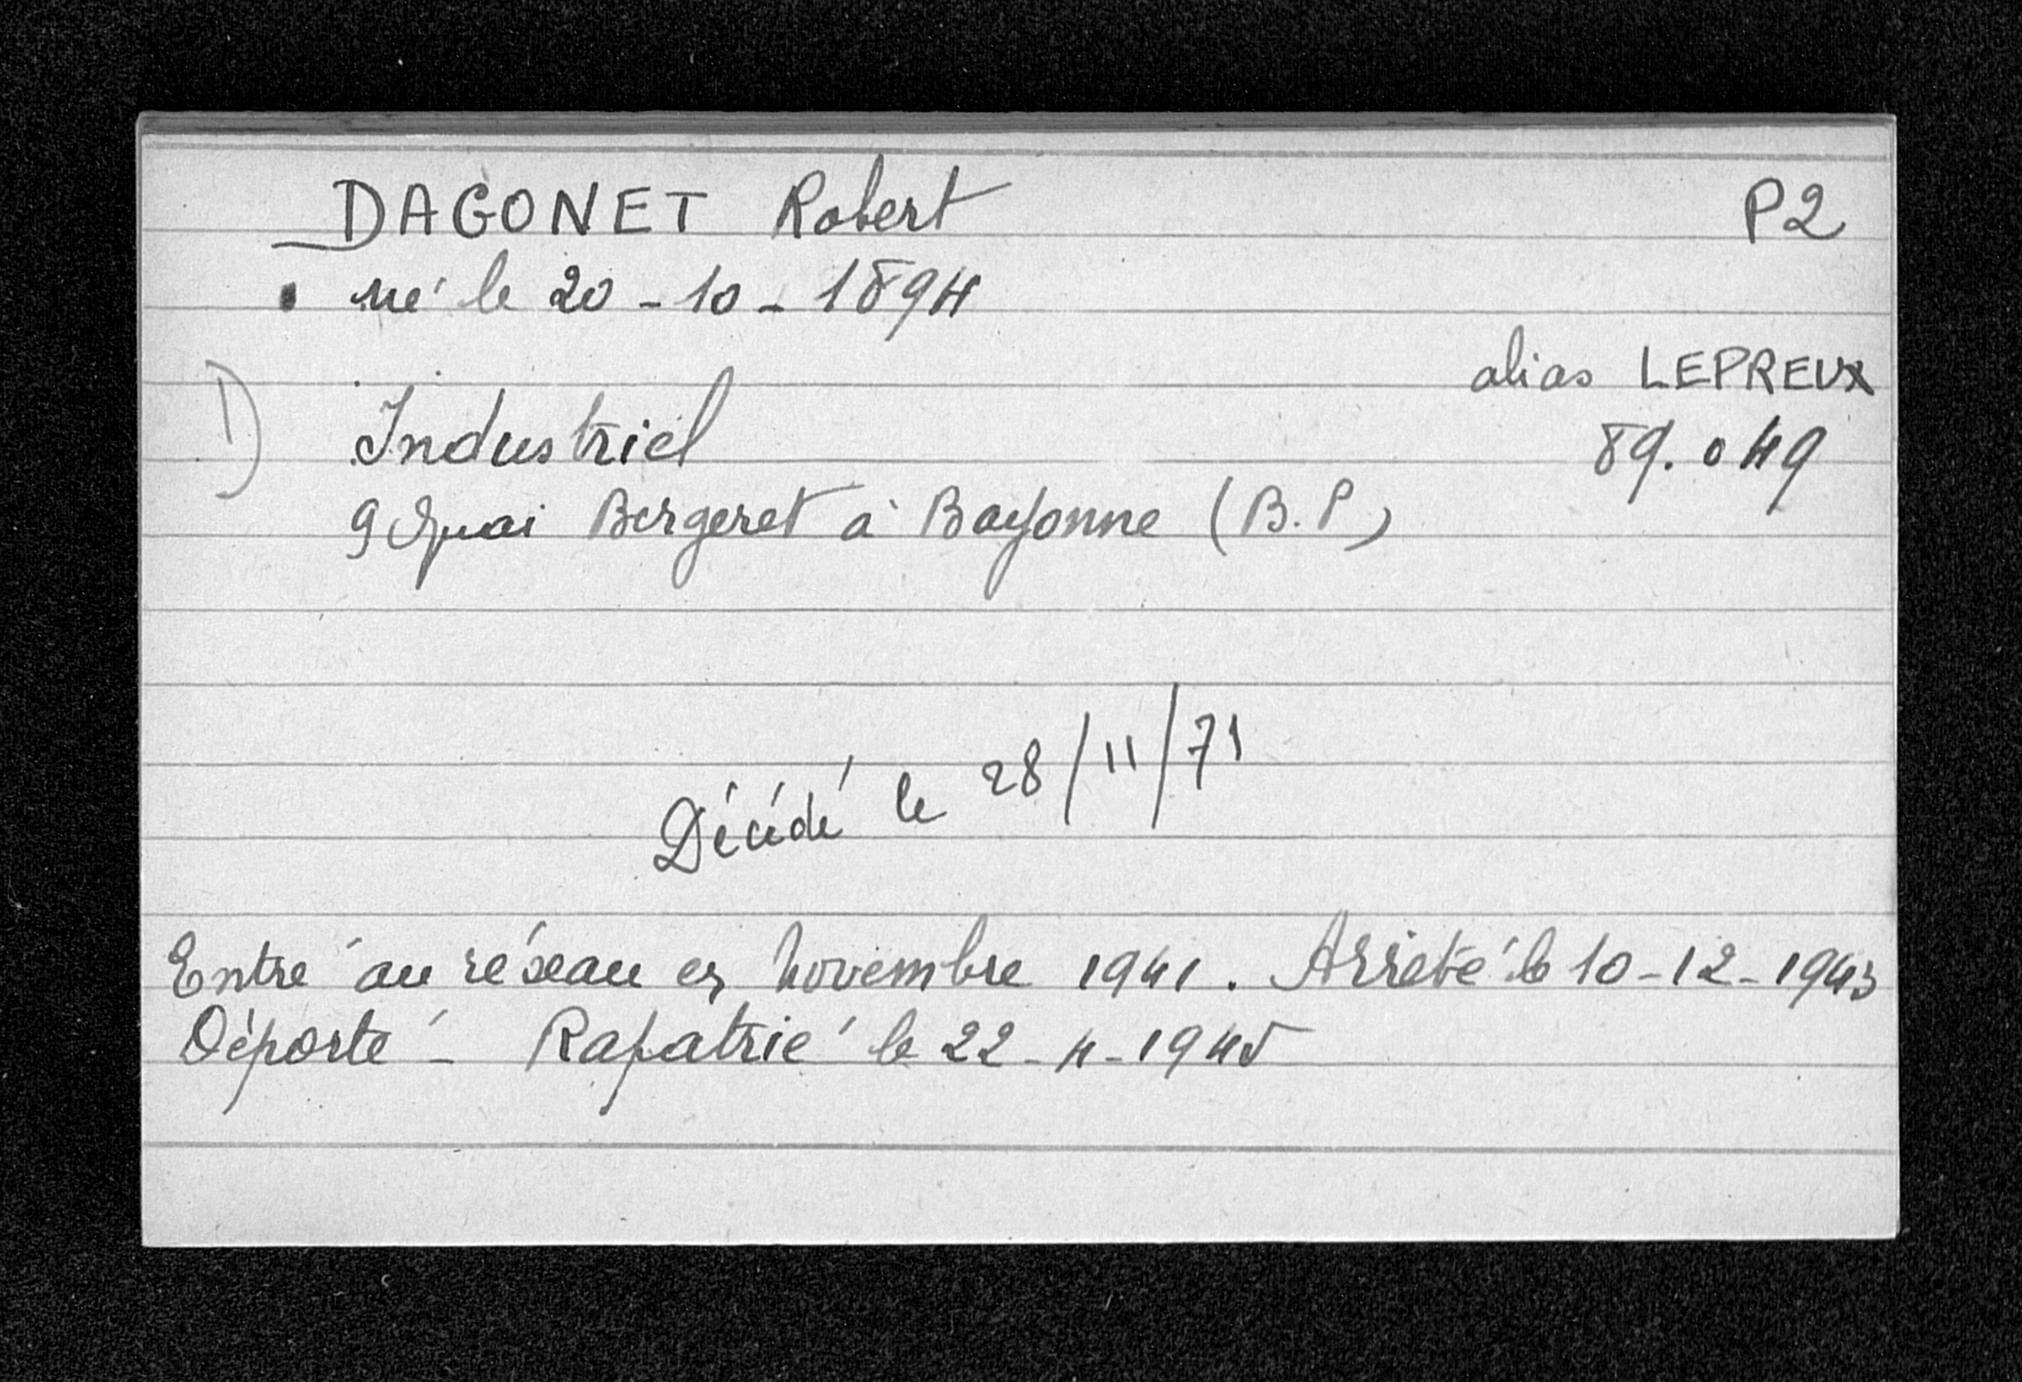 DAGONET Robert P2
né le 20-10-1894
alias LEPREUX
D) Industriel 89.049
9 Quai Bergeret à Bayonne (B.P)
Décédé le 28/11/71
Entré au réseau en novembre 1941. Arrêté le 10-12-1943
Déporté - Rapatrié le 22-4-1945